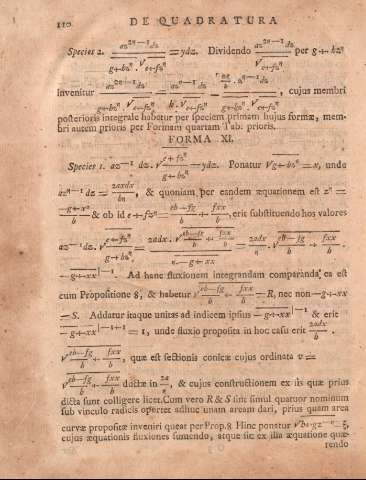 110 DE QUADRATURA
Species 2. az²ⁿ⁻¹dz / g+bzⁿ.√e+fzⁿ = ydz. Dividendo az²ⁿ⁻¹dz / √e+fzⁿ per g+bzⁿ
invenitur az²ⁿ⁻¹dz / g+bzⁿ.√e+fzⁿ = azⁿ⁻¹dz / b.√e+fzⁿ − ag/b.zⁿ⁻¹dz / g+bzⁿ.√e+fzⁿ, cujus membri
posterioris integrale habetur per speciem primam hujus formæ, mem-
bri autem prioris per Formam quartam Tab. prioris.
FORMA XI.
Species 1. az⁻¹dz.√e+fzⁿ / g+bzⁿ = ydz. Ponatur √g+bzⁿ = x, unde
azⁿ⁻¹dz = 2axdx / bn, & quoniam per eandem æquationem est zⁿ =
−g+x² / b & ob id e+fzⁿ = eb−fg / b + fxx / b, erit substituendo hos valores
az⁻¹dz.√e+fzⁿ / g+bzⁿ = 2adx.√eb−fg/b + fxx/b / n.−g+xx = 2adx / n.√eb−fg/b + fxx/b.
−g+xx|⁻¹. Ad hanc fluxionem integrandam comparanda ea est
cum Propositione 8, & habetur √eb−fg/b + fxx/b = R, nec non −g+xx
= S. Addatur itaque unitas ad indicem ipsius −g+xx|⁻¹ & erit
−g+xx|⁻¹⁺¹ = 1, unde fluxio proposita in hoc casu erit 2adx / n.
√eb−fg/b + fxx/b, quæ est sectionis conicæ cujus ordinata v =
√eb−fg/b + fxx/b ductæ in 2a/n, & cujus constructionem ex iis quæ prius
dicta sunt colligere licet. Cum vero R & S sint simul quatuor nominum
sub vinculo radicis oportet adhuc unam aream dari, prius quam area
curvæ propositæ inveniri queat per Prop. 8 Hinc ponatur
cujus æquationis fluxiones sumendo, atque sic ex illa æquatione quæ-
rendo